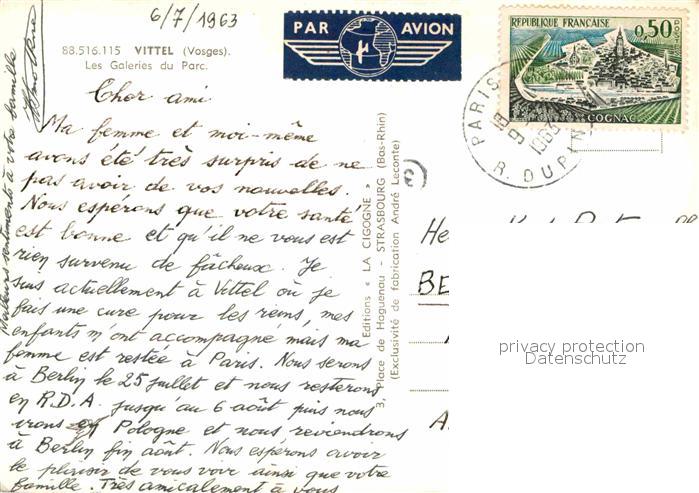 6/7/1963
88.516.115 VITTEL (Vosges).
Les Galeries du Parc.
Cher ami
Ma femme et moi-même
avons été très surpris de ne
pas avoir de vos nouvelles.
Nous espérons que votre santé
est bonne et qu'il ne vous est
rien survenu de fâcheux. Je
suis actuellement à Vittel où je
fais une cure pour les reins, mes
enfants m'ont accompagné mais ma
femme est restée à Paris. Nous serons
à Berlin le 25 juillet et nous resterons
en R.D.A. jusqu'au 6 août puis nous
irons en Pologne et nous reviendrons
à Berlin fin août. Nous espérons avoir
le plaisir de vous voir ainsi que votre
famille. Très amicalement à vous
Meilleurs sentiments à votre famille
Editions « LA CIGOGNE »
3, Place de Haguenau - STRASBOURG (Bas-Rhin)
(Exclusivité de fabrication André Leconte)
PAR AVION
REPUBLIQUE FRANÇAISE
0,50
POSTES
COGNAC
PARIS
18
9
1963
R. DUPIN
He
BE
A
privacy protection
Datenschutz